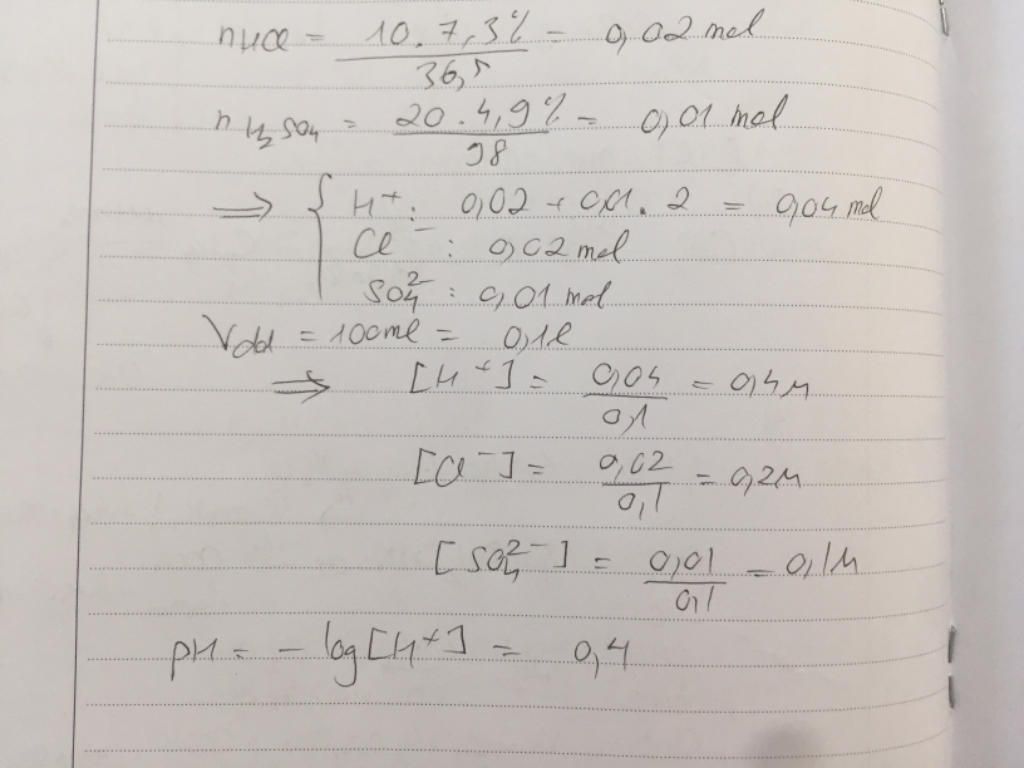 nHCl = 10.7,3% / 36,5 = 0,02 mol
nH2SO4 = 20.4,9% / 98 = 0,01 mol
⇒ { H+: 0,02 + 0,01. 2 = 0,04 mol
Cl- : 0,02 mol
SO4^2- : 0,01 mol
Vdd = 100ml = 0,1l
⇒ [H+] = 0,04 / 0,1 = 0,4M
[Cl-] = 0,02 / 0,1 = 0,2M
[SO4^2-] = 0,01 / 0,1 = 0,1M
pH = - log[H+] = 0,4